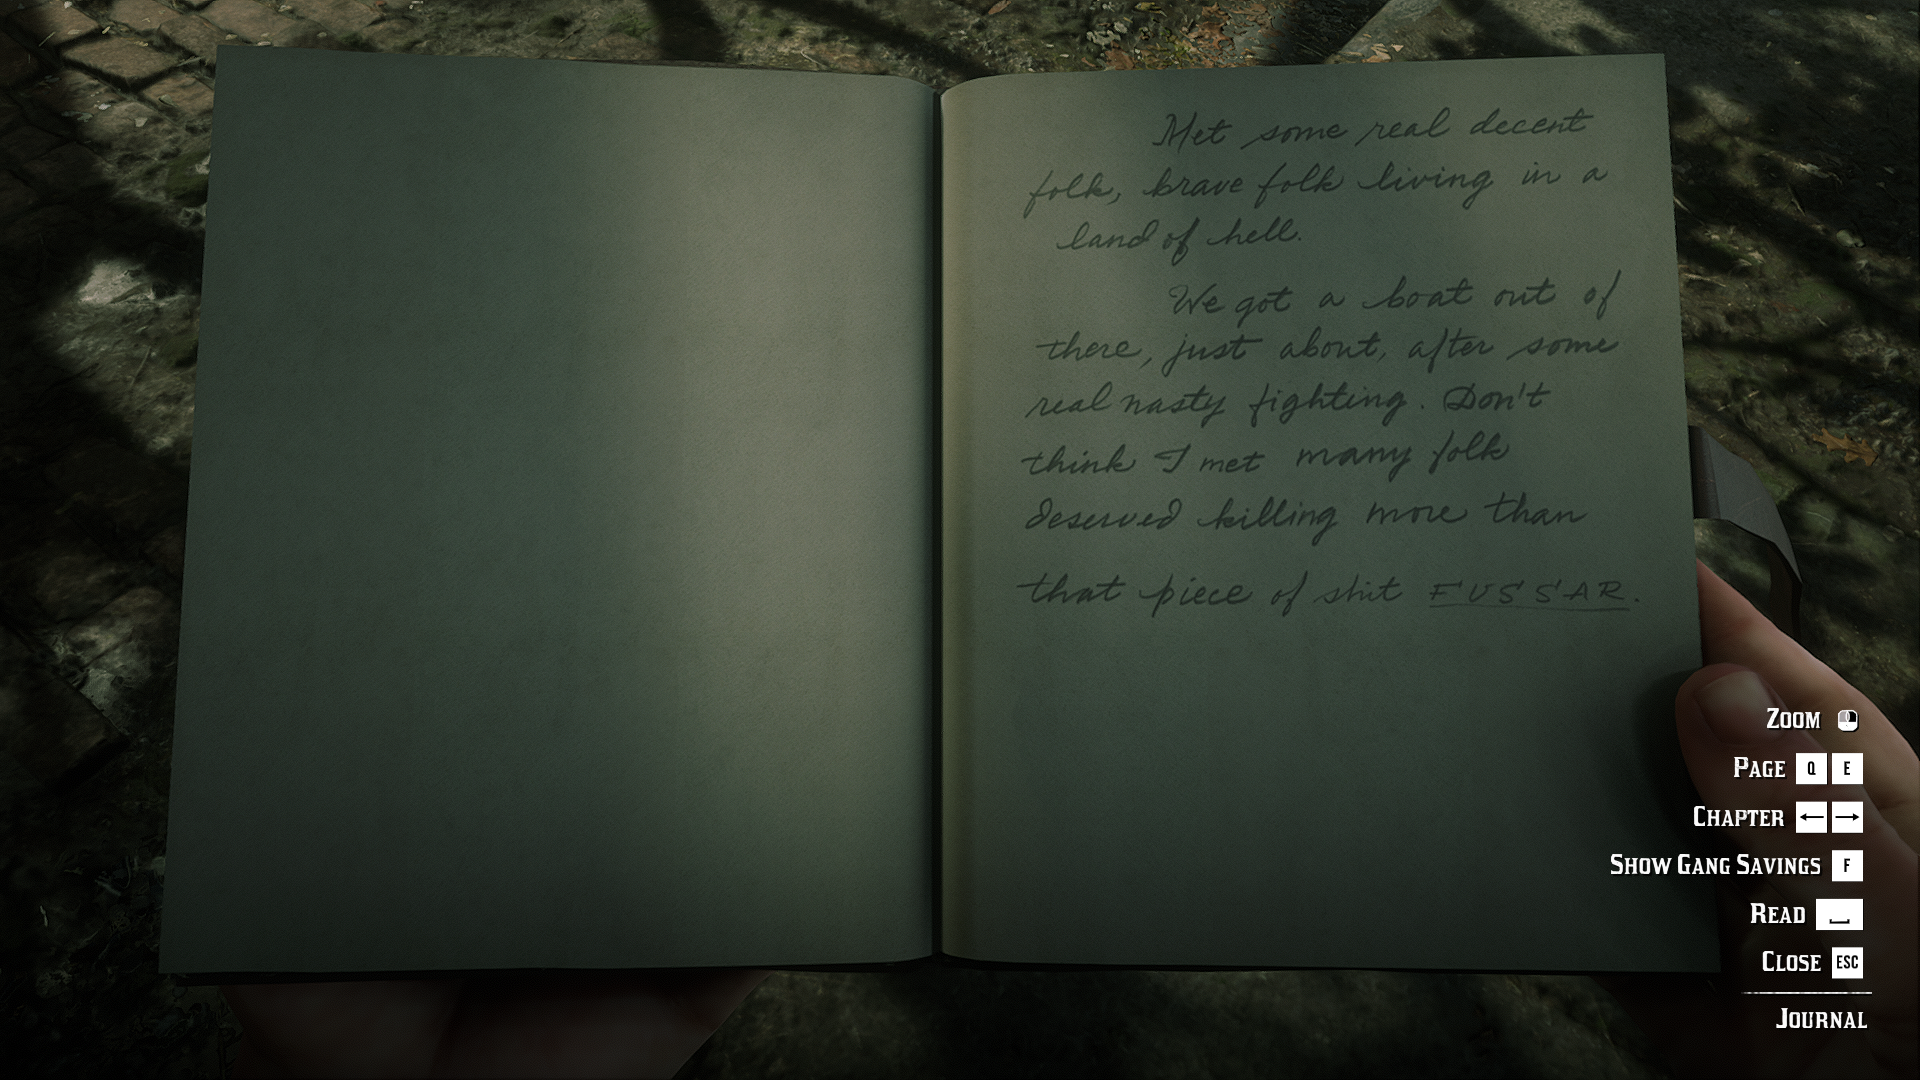 Met some real decent
folk, brave folk living in a
land of hell.
We got a boat out of
there, just about, after some
real nasty fighting. Don't
think I met many folk
deserved killing more than
that piece of shit FUSSAR.
ZOOM
PAGE Q E
CHAPTER ← →
SHOW GANG SAVINGS F
READ
CLOSE ESC
JOURNAL